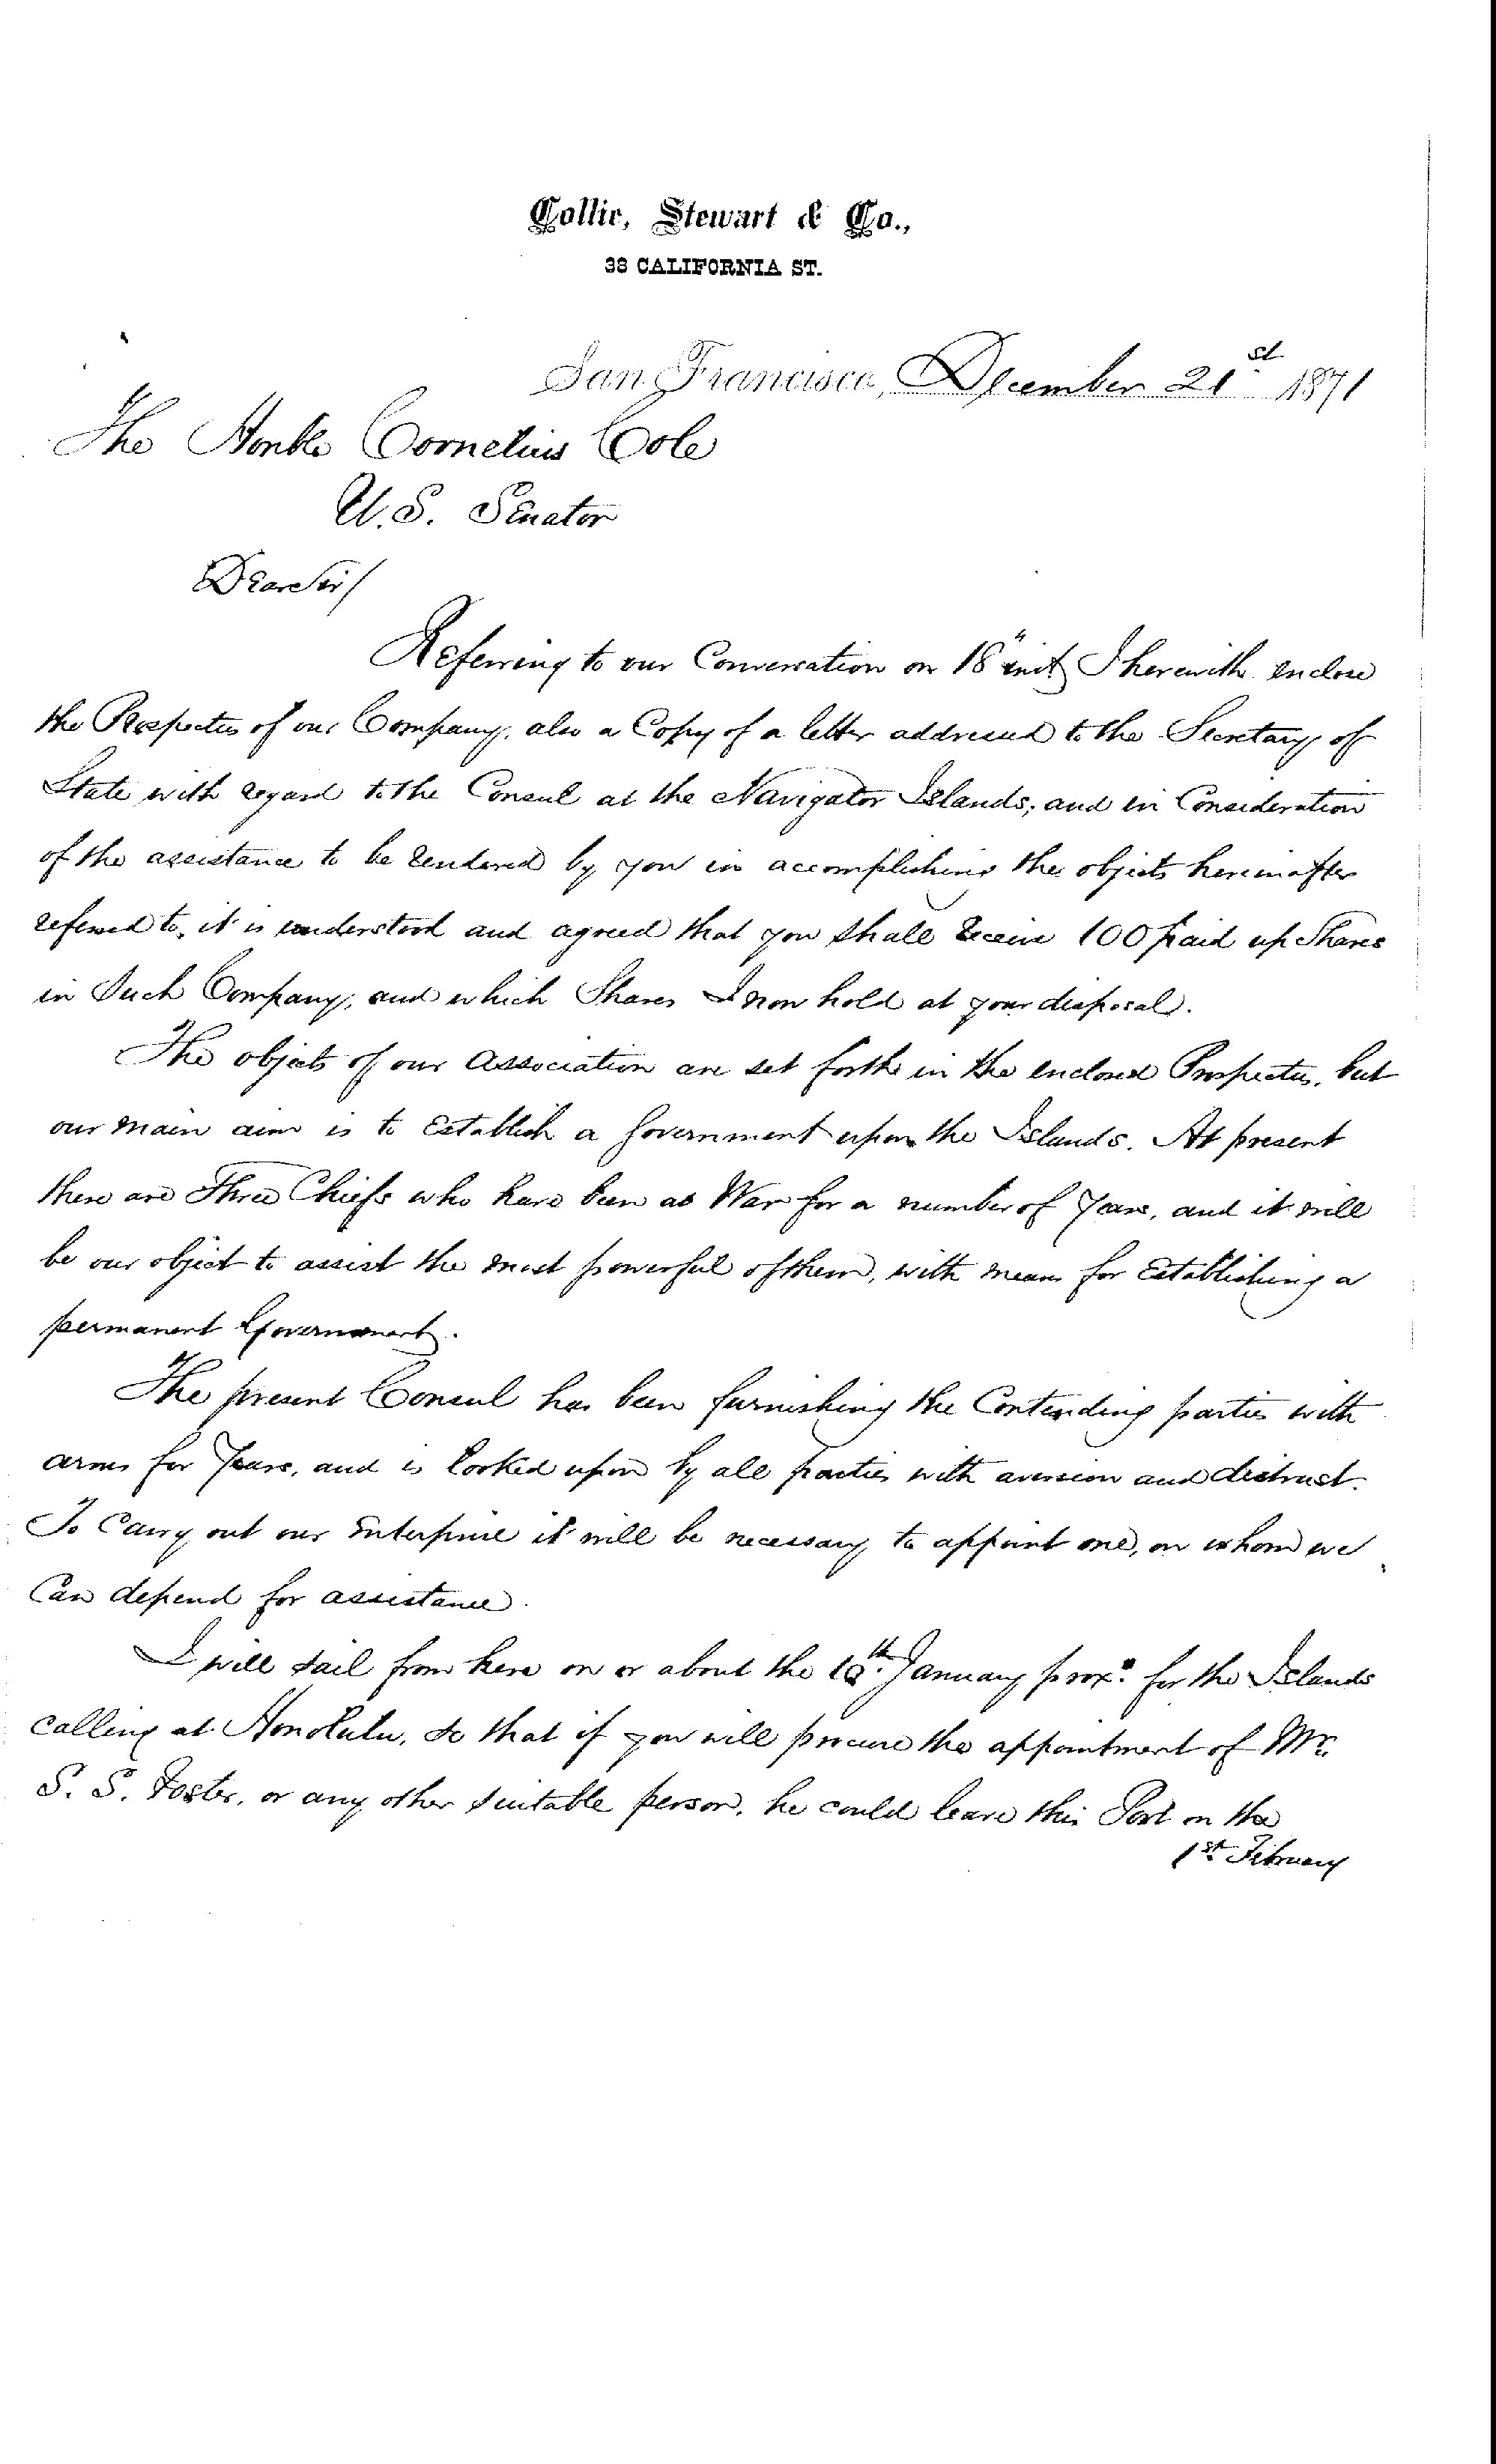 Collie, Stewart & Co.,
38 CALIFORNIA ST.
San Francisco, December 21st 1871
The Honble Cornelius Cole
U.S. Senator
Dear Sir/
Referring to our Conversation on 18" inst I herewith enclose
the Prospectus of our Company, also a Copy of a letter addressed to the Secretary of
State with regard to the Consul at the Navigator Islands; and in Consideration
of the assistance to be rendered by you in accomplishing the objects hereinafter
referred to, it is understood and agreed that you shall receive 100 paid up Shares
in Such Company, and which Shares I now hold at your disposal.
The objects of our Association are set forth in the enclosed Prospectus, but
our main aim is to Establish a Government upon the Islands. At present
there are Three Chiefs who have been at War for a number of Years, and it will
be our object to assist the most powerful of them, with means for Establishing a
permanent Government.
The present Consul has been furnishing the Contending parties with
arms for Years, and is looked upon by all parties with aversion and distrust.
To Carry out our Enterprise it will be necessary to appoint one, on whom we
Can depend for assistance.
I will sail from here on or about the th January proxo. for the Islands
calling at Honolulu, so that if you will procure the appointment of Mr.
S. S. Foster, or any other suitable person, he could leave this Port on the
1st February